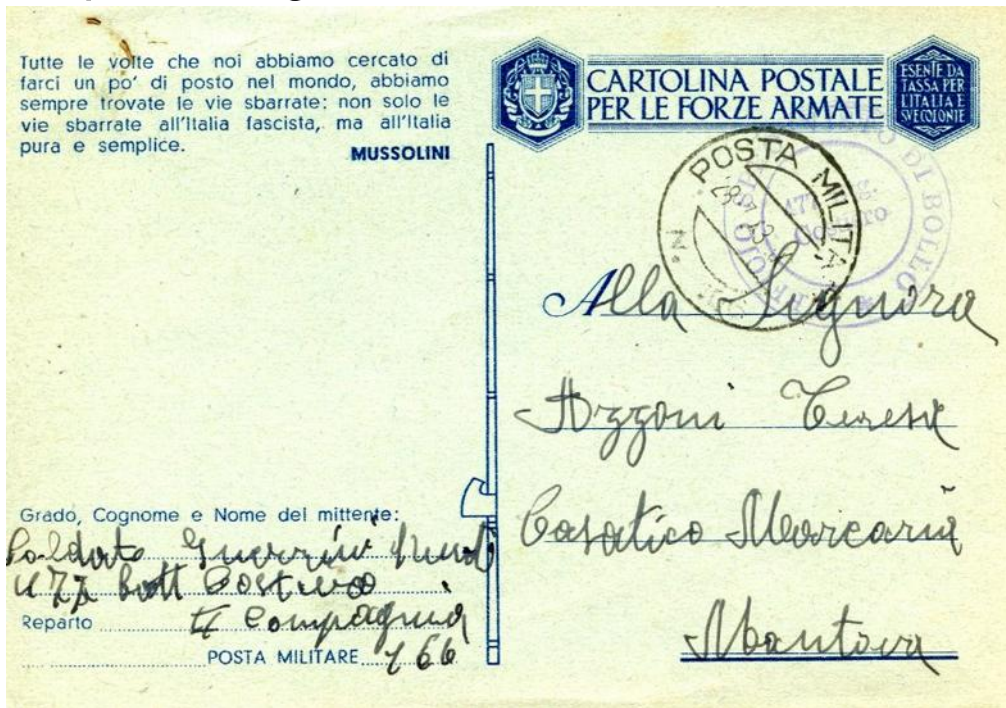 Tutte le volte che noi abbiamo cercato di
farci un po' di posto nel mondo, abbiamo
sempre trovate le vie sbarrate: non solo le
vie sbarrate all'Italia fascista, ma all'Italia
pura e semplice.
MUSSOLINI
CARTOLINA POSTALE
PER LE FORZE ARMATE
ESENTE DA
TASSA PER
L'ITALIA E
SVE COLONIE
POSTA MILITA
N.
DI BOLLO
Alla Signora
Azzoni Teresa
Casatico Marcaria
Mantova
Grado, Cognome e Nome del mittente:
Soldato Guerrini
Batt Costiero
Reparto II Compagnia
POSTA MILITARE 166